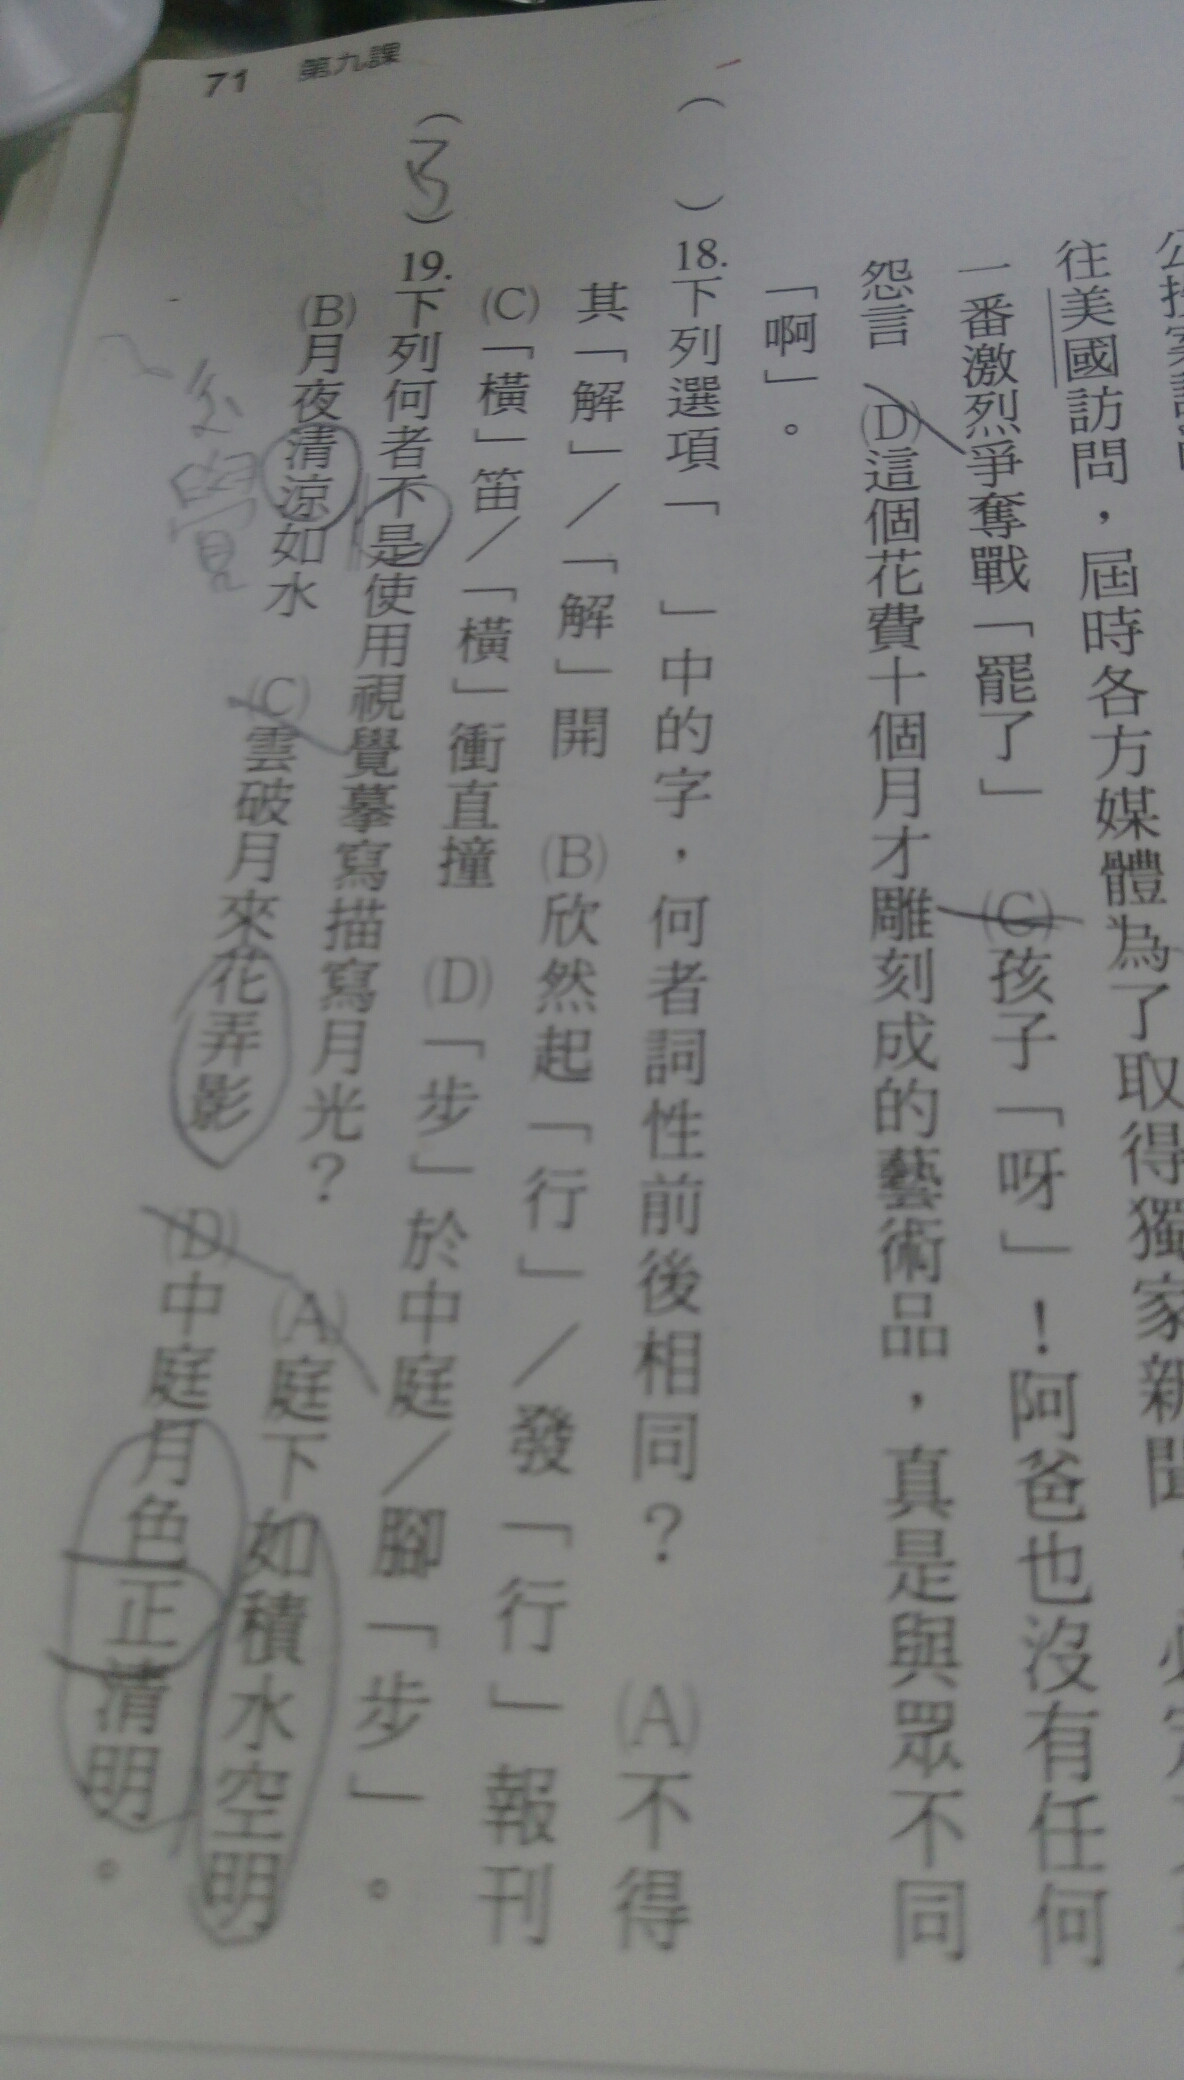 71 第九課
往美國訪問，屆時各方媒體為了取得獨家新聞
一番激烈爭奪戰「罷了」 (C)孩子「呀」！阿爸也沒有任何
怨言 (D)這個花費十個月才雕刻成的藝術品，真是與眾不同
「啊」。
( )18.下列選項「 」中的字，何者詞性前後相同？ (A)不得
其「解」／「解」開 (B)欣然起「行」／發「行」報刊
(C)「橫」笛／「橫」衝直撞 (D)「步」於中庭／腳「步」。
( )19.下列何者不是使用視覺摹寫描寫月光？ (A)庭下如積水空明
(B)月夜清涼如水 (C)雲破月來花弄影 (D)中庭月色正清明。